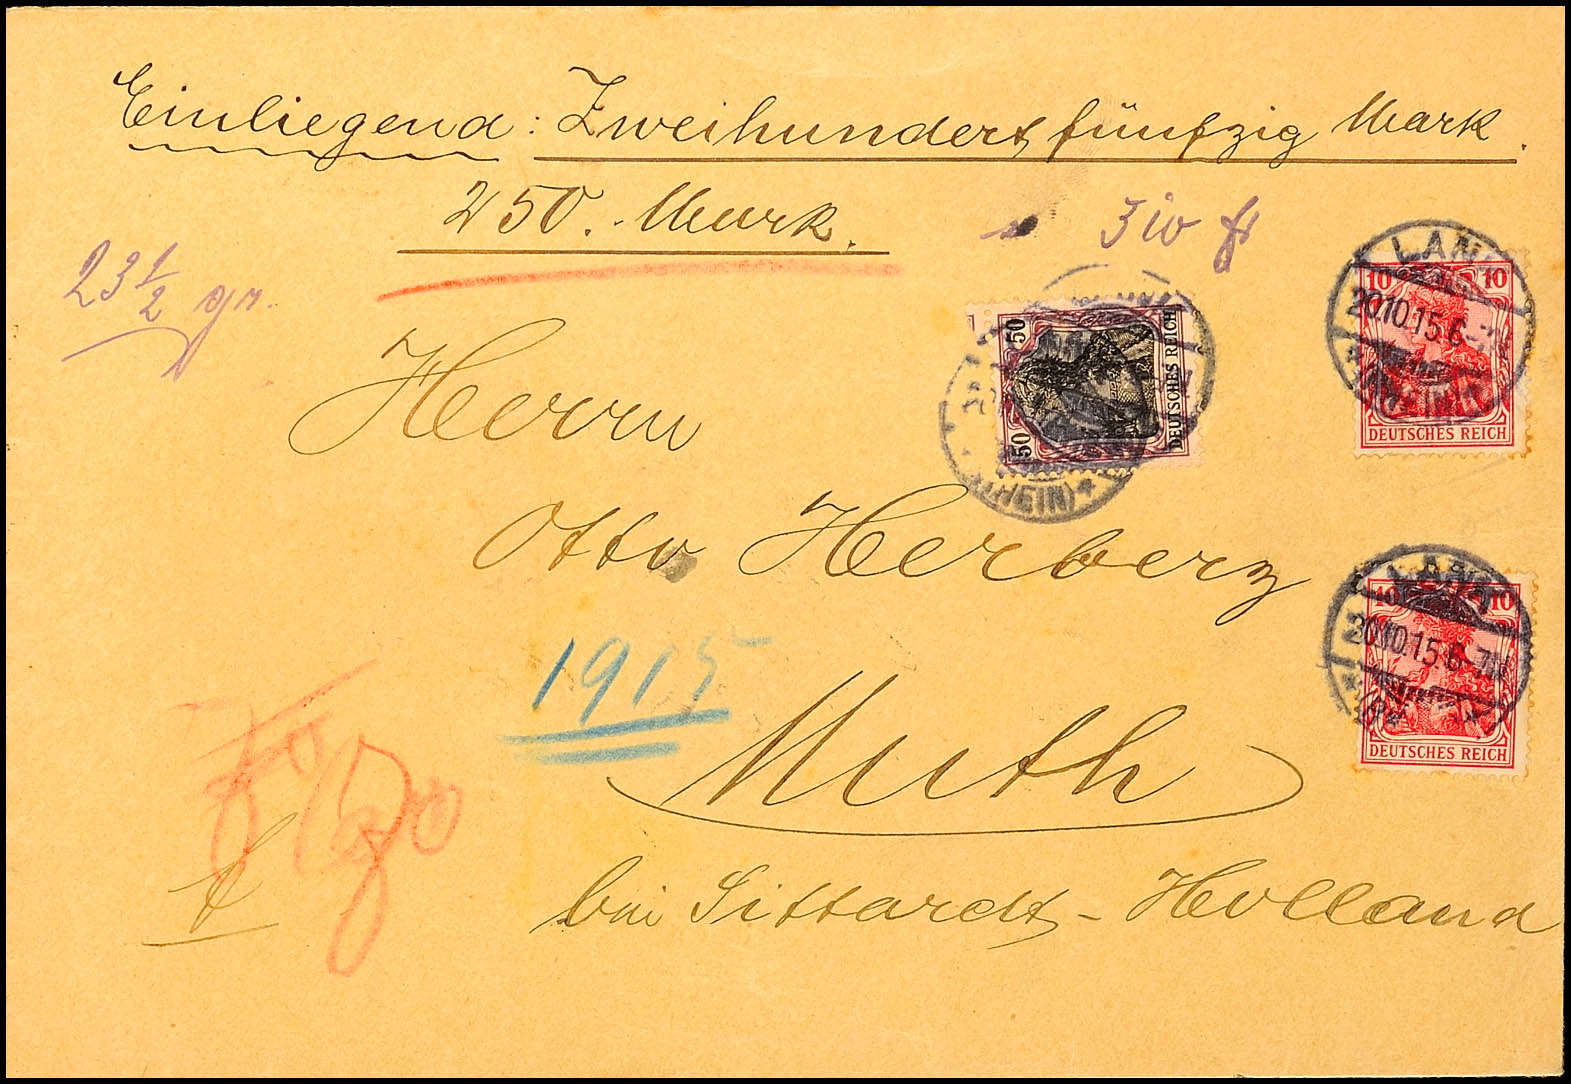 Einliegend: Zweihundert fünfzig Mark.
250. Mark.
23 1/2 gr.
310 fr
LANK
20.10.15.6-7N
(RHEIN)
10 10
DEUTSCHES REICH
50 50
DEUTSCHES REICH
(RHEIN)
Herrn
Otto Herberz
LANK
20.10.15.6-7N
10 10
DEUTSCHES REICH
1915
Muth
bei Sittardt - Holland